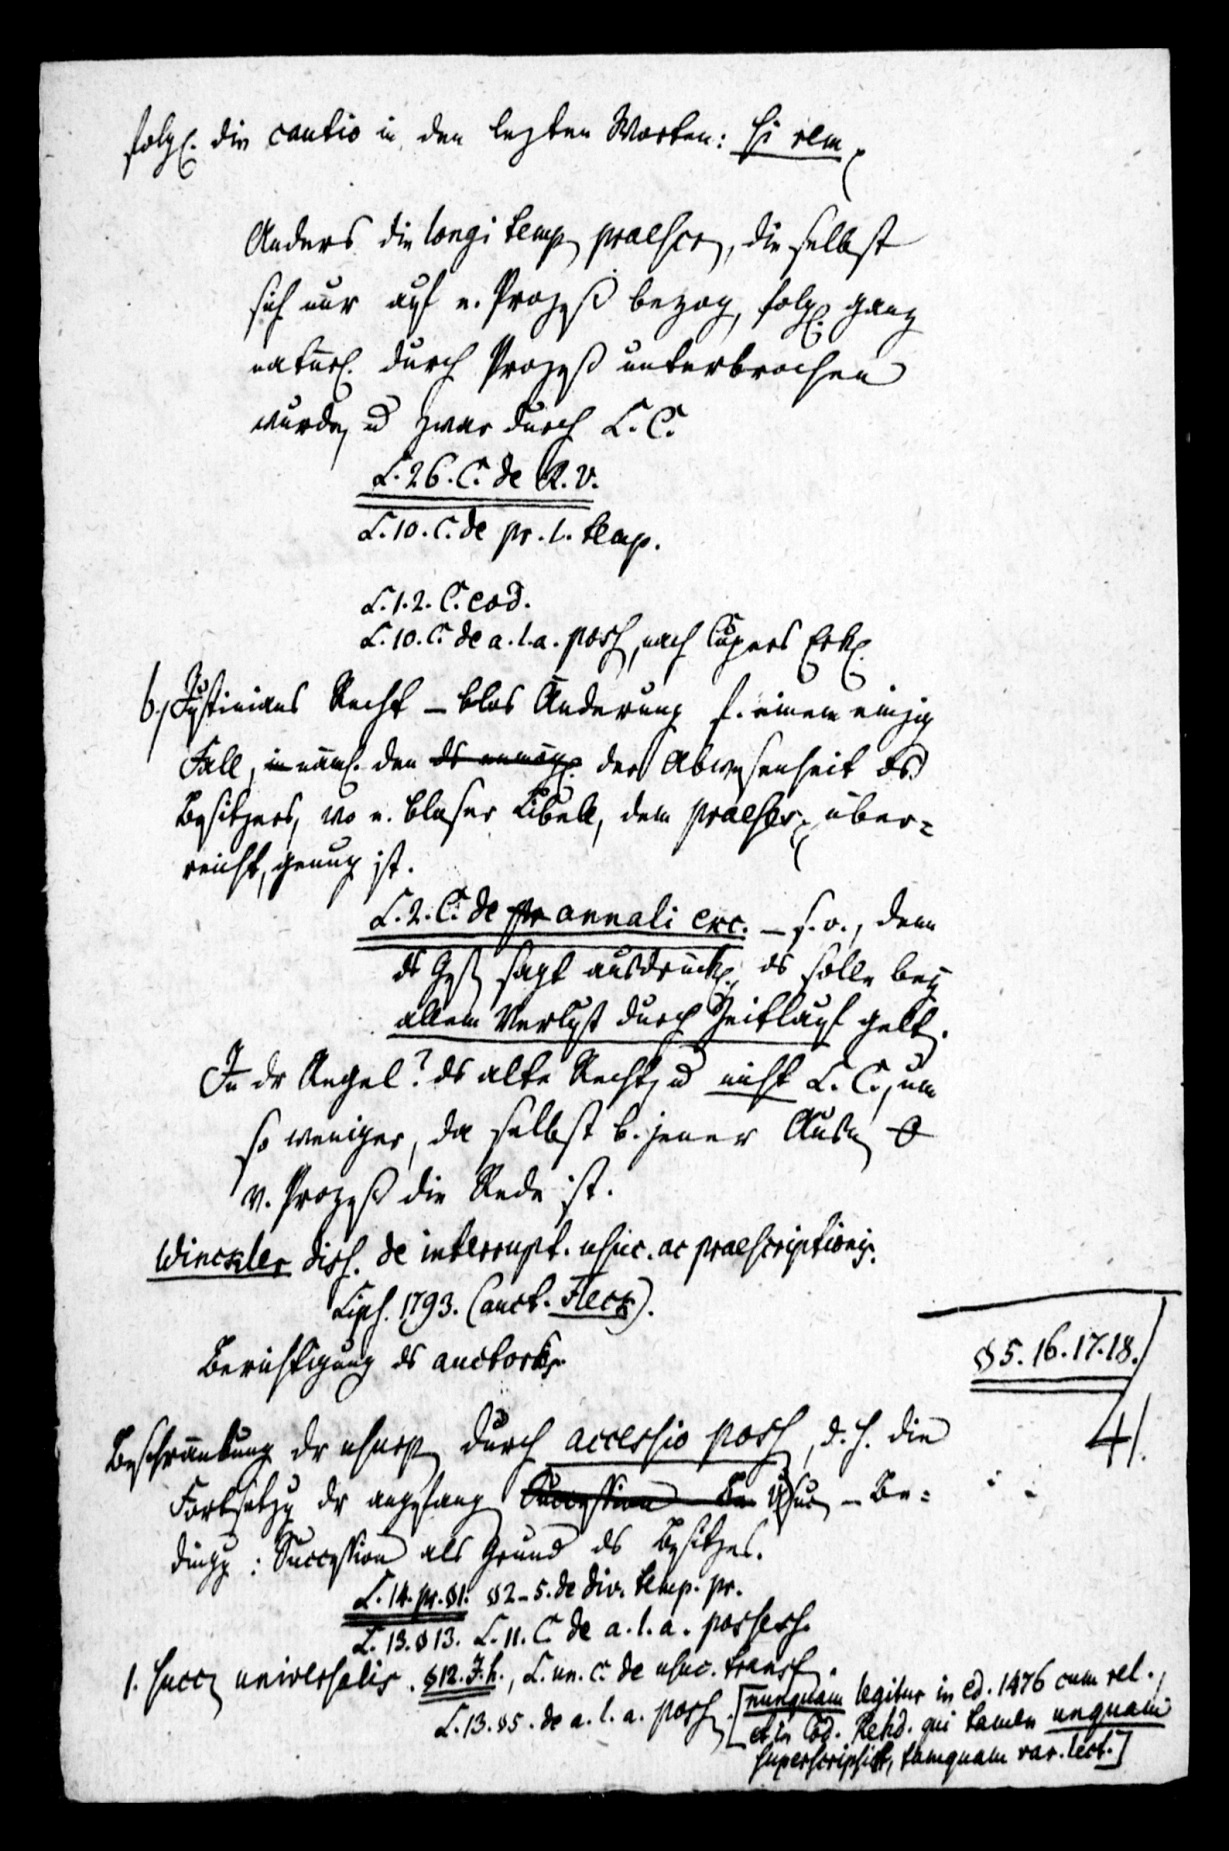 folgl. die cantio in den lezten Worten: si rem
Anders die longi temp praescr, die selbst
sich nur auf e. Prozeß bezog, folgl. ganz
natürl. durch Prozeß unterbrochen
wurde, u zwar durch L. C.
L. 26. C. de R. V.
L. 10. C. de pr. l. temp.
L. 1. 2. C. eod.
L. 10. C. de a. l. a. poss, nach Cupers Erkl.
b., Justinians Recht – blos Änderung f. einem einzig
Fall, in näml. den der Abwesenheit ds
Besitzers, wo e. bloser Libell, dem praeses über=
reicht, genug ist.
L. 2. C. de pr annali exc. – s. o., denn
ds Ges sagt ausdrückl. ds solle bey
allem Verlust durch Zeitlauf gelt.
In dr Regel? ds alte Recht, u nicht L. C., um
so weniger, da selbst b. jener Ausn
v. Prozeß die Rede ist.
Winckler diss. de interrupt. usuc. ac praescriptionis.
Lips. 1793. (auct. Fleck).
Berichtigung ds auctors
§ 5. 16. 17. 18.
41.
Beschränkung dr usucap durch accessio poss, d. h. die
Fortsetzg dr angefang Succession Usuc – Be=
dingg: Succession als Grund ds Besitzes.
L. 14. pr. §1. §2–5. de div. temp. pr.
L. 13. §13. L. 11. C. de a. l. a. possess.
1. succ universalis. §12. J. h., L. un. C. de usuc. transf.
L. 13. §5. de a. l. a. poss. [nunquam legitur in ed. 1476 cum rel.,
et in Cod. Rehd. qui tamen unquam
superscripsit, tamquam var. lect.]